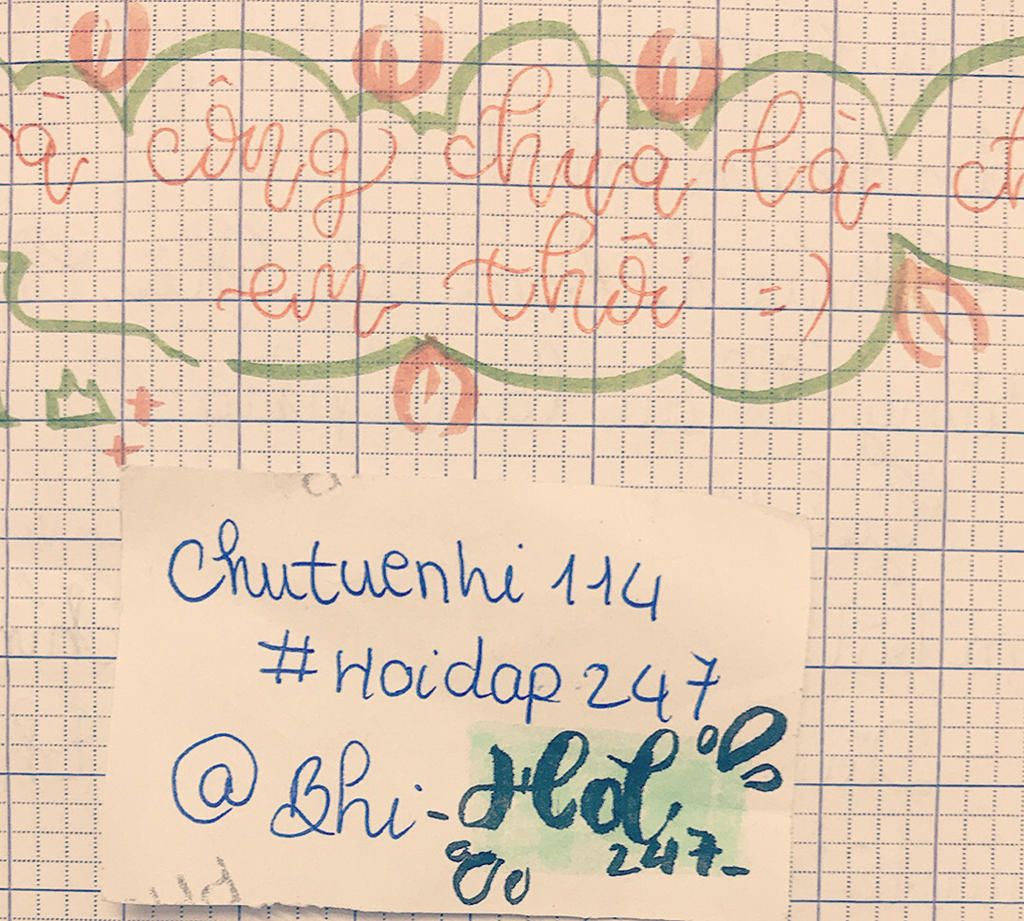 à công chúa là ch
em thôi =)
Chutuenhi 114
#Hoidap 247
@Bhi-
247-